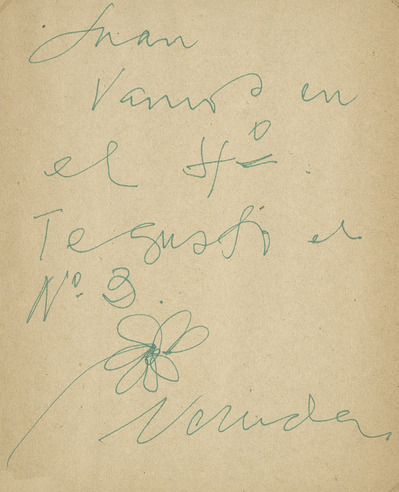 Juan
Vamos en
el 4º.
Te gustó el
Nº 3.
Neruda